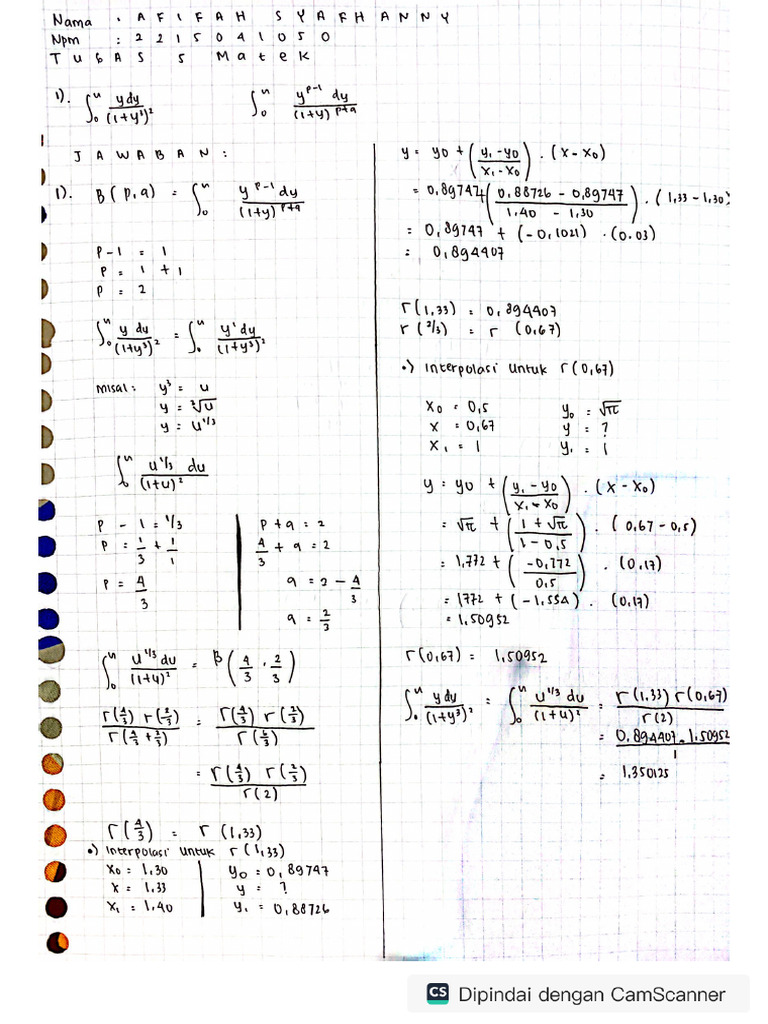 Nama : AFIFAH SYAFHANNY
Npm : 2215041050
TUGAS 5 Matek
1). ∫₀ᵘ y dy / (1+y³)²    ∫₀ᵘ y^(p-1) dy / (1+y)^(p+q)
JAWABAN :
1). B(p,q) = ∫₀ᵘ y^(p-1) dy / (1+y)^(p+q)
p-1 = 1
p = 1 + 1
p = 2
∫₀ᵘ y dy / (1+y³)² = ∫₀ᵘ y' dy / (1+y³)²
misal : y³ = u
y = ³√u
y = u^(1/3)
∫₀ᵘ u^(1/3) du / (1+u)²
p - 1 = 1/3
p = 1/3 + 1/1
p = 4/3
p + q = 2
4/3 + q = 2
q = 2 - 4/3
q = 2/3
∫₀ᵘ u^(1/3) du / (1+u)² = B(4/3 . 2/3)
r(4/3) r(2/3) / r(4/3 + 2/3) = r(4/3) r(2/3) / r(6/3)
= r(4/3) r(2/3) / r(2)
r(4/3) = r(1,33)
•) Interpolasi untuk r(1,33)
x₀ = 1,30    y₀ = 0,89747
x = 1,33    y = ?
x₁ = 1,40    y₁ = 0,88726
y = y₀ + (y₁ - y₀ / x₁ - x₀) . (x - x₀)
= 0,89747 (0,88726 - 0,89747 / 1,40 - 1,30) . (1,33 - 1,30)
= 0,89747 + (-0,1021) . (0.03)
= 0,894407
r(1,33) = 0,894407
r(2/3) = r(0,67)
•) Interpolasi untuk r(0,67)
x₀ = 0,5    y₀ = √π
x = 0,67    y = ?
x₁ = 1    y₁ = 1
y = y₀ + (y₁ - y₀ / x₁ - x₀) . (x - x₀)
= √π + (1 + √π / 1 - 0,5) . (0,67 - 0,5)
= 1,772 + (-0,772 / 0,5) . (0,17)
= 1772 + (-1,554) . (0,17)
= 1,50952
r(0,67) = 1,50952
∫₀ᵘ y dy / (1+y³)² = ∫₀ᵘ u^(1/3) du / (1+u)² = r(1,33) r(0,67) / r(2)
= 0,894407 . 1,50952 / 1
= 1,350125
CS Dipindai dengan CamScanner